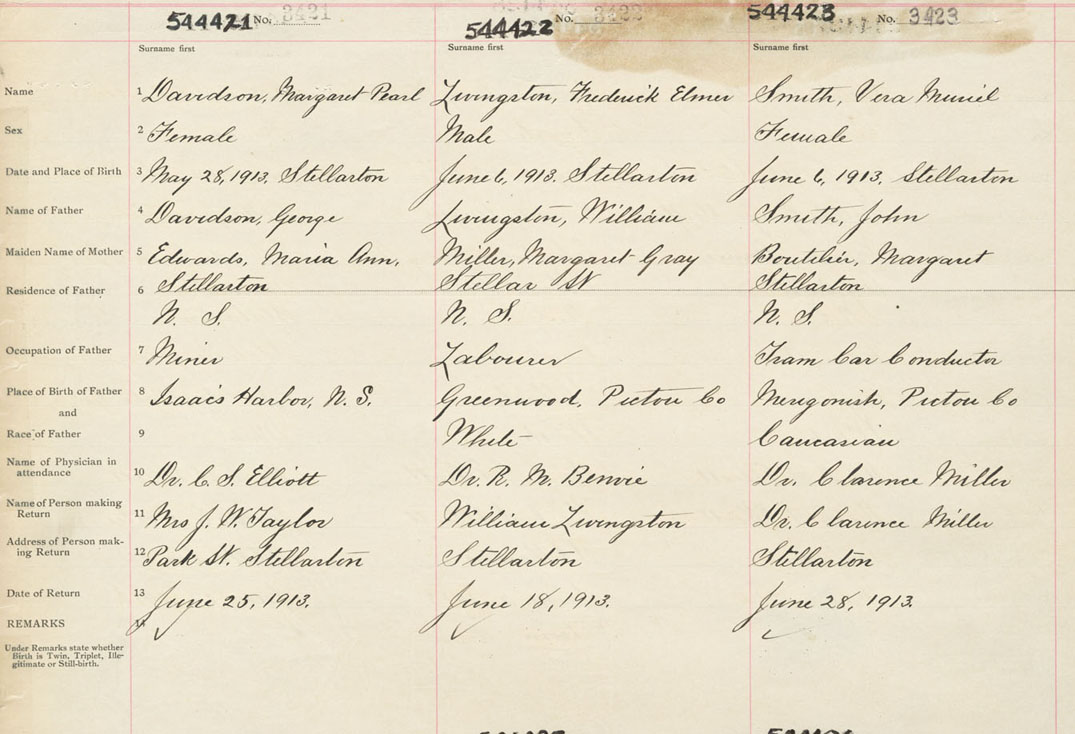 544421 No. 3421 544422 No. 3422 544423 No. 3423
Surname first Surname first Surname first
Name 1 Davidson, Margaret Pearl Livingston, Frederick Elmer Smith, Vera Muriel
Sex 2 Female Male Female
Date and Place of Birth 3 May 28, 1913. Stellarton June 6, 1913. Stellarton June 6, 1913. Stellarton
Name of Father 4 Davidson, George Livingston, William Smith, John
Maiden Name of Mother 5 Edwards, Maria Ann, Miller, Margaret Gray Boutilier, Margaret
Residence of Father 6 Stellarton Stellar St Stellarton
N. S. N. S. N. S.
Occupation of Father 7 Miner Labourer Tram Car Conductor
Place of Birth of Father 8 Isaac's Harbor, N. S. Greenwood, Pictou Co Merigonish, Pictou Co
and
Race of Father 9 White Caucasian
Name of Physician in
attendance 10 Dr. C. S. Elliott Dr. R. M. Benvie Dr. Clarence Miller
Name of Person making
Return 11 Mrs J. W. Taylor William Livingston Dr. Clarence Miller
Address of Person mak-
ing Return 12 Park St. Stellarton Stellarton Stellarton
Date of Return 13 June 25, 1913. June 18, 1913. June 28, 1913.
REMARKS 14
Under Remarks state whether
Birth is Twin, Triplet, Ille-
gitimate or Still-birth.